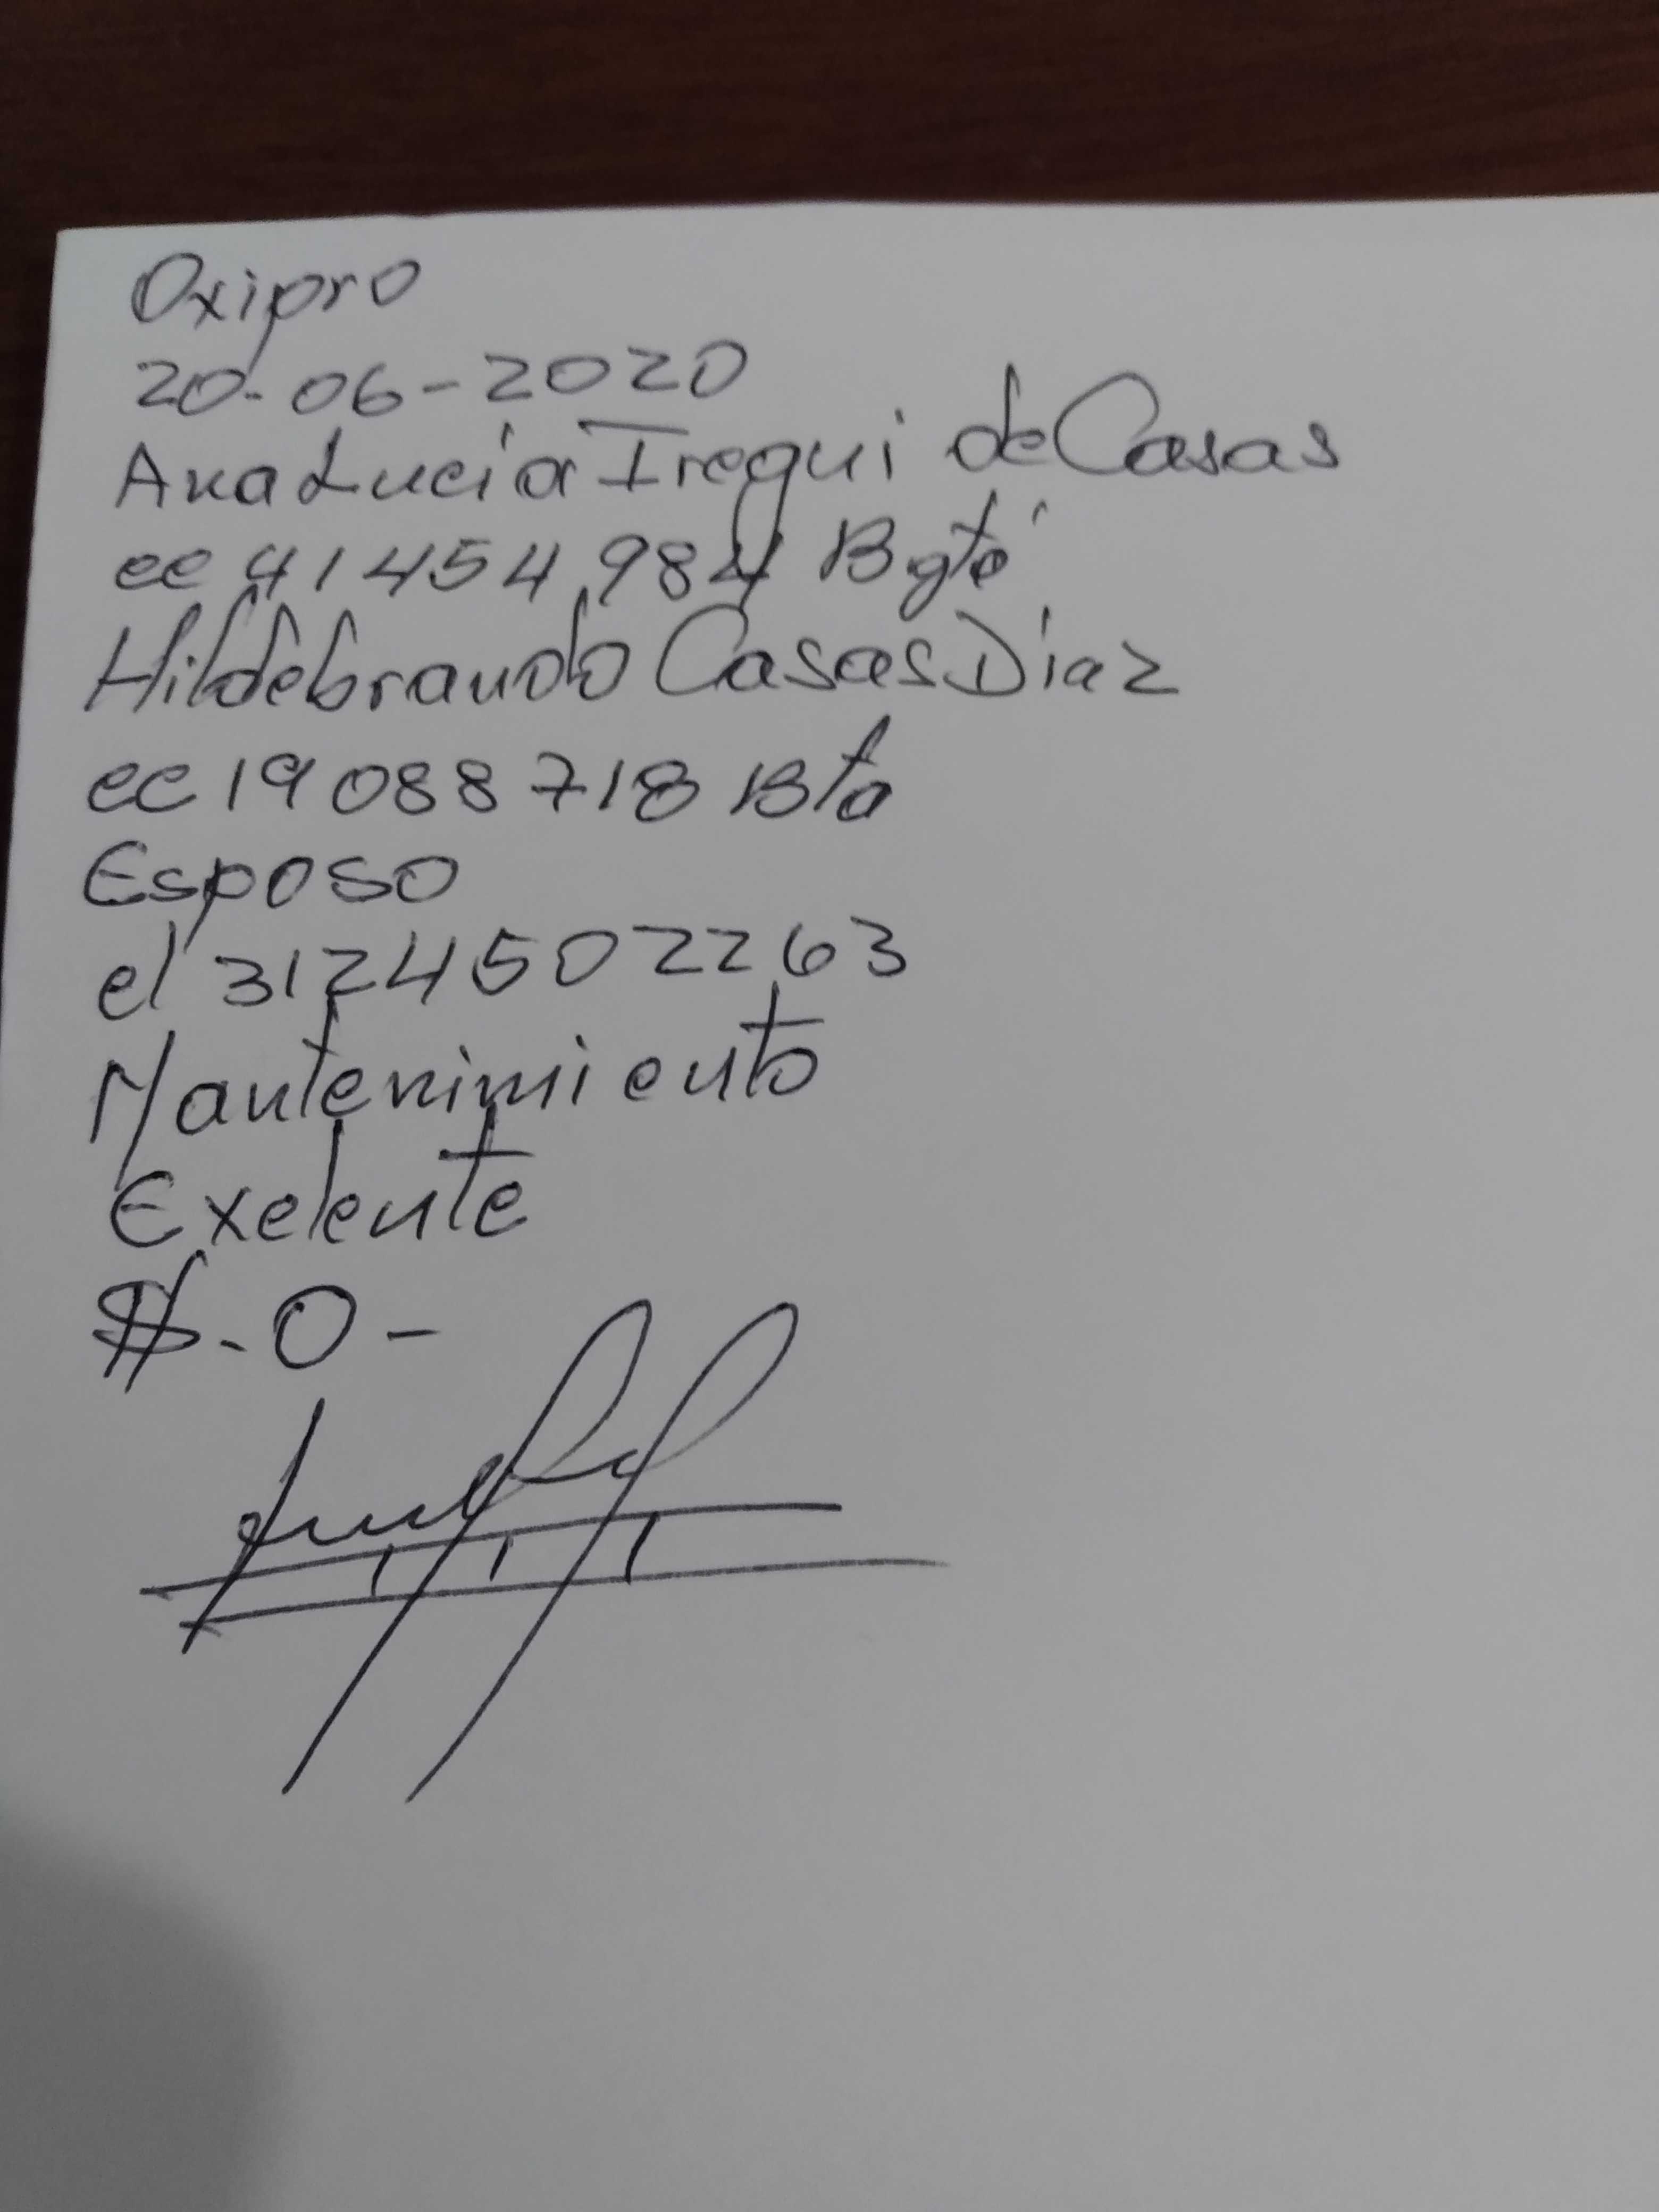 Oxipro
20-06-2020
Ana Lucia Iregui de Casas
cc 41454984 Bgtá
Hildebrando Casas Diaz
cc 19088718 Bta
Esposo
cl 31245022 63
Mantenimiento
Exelente
$.0-